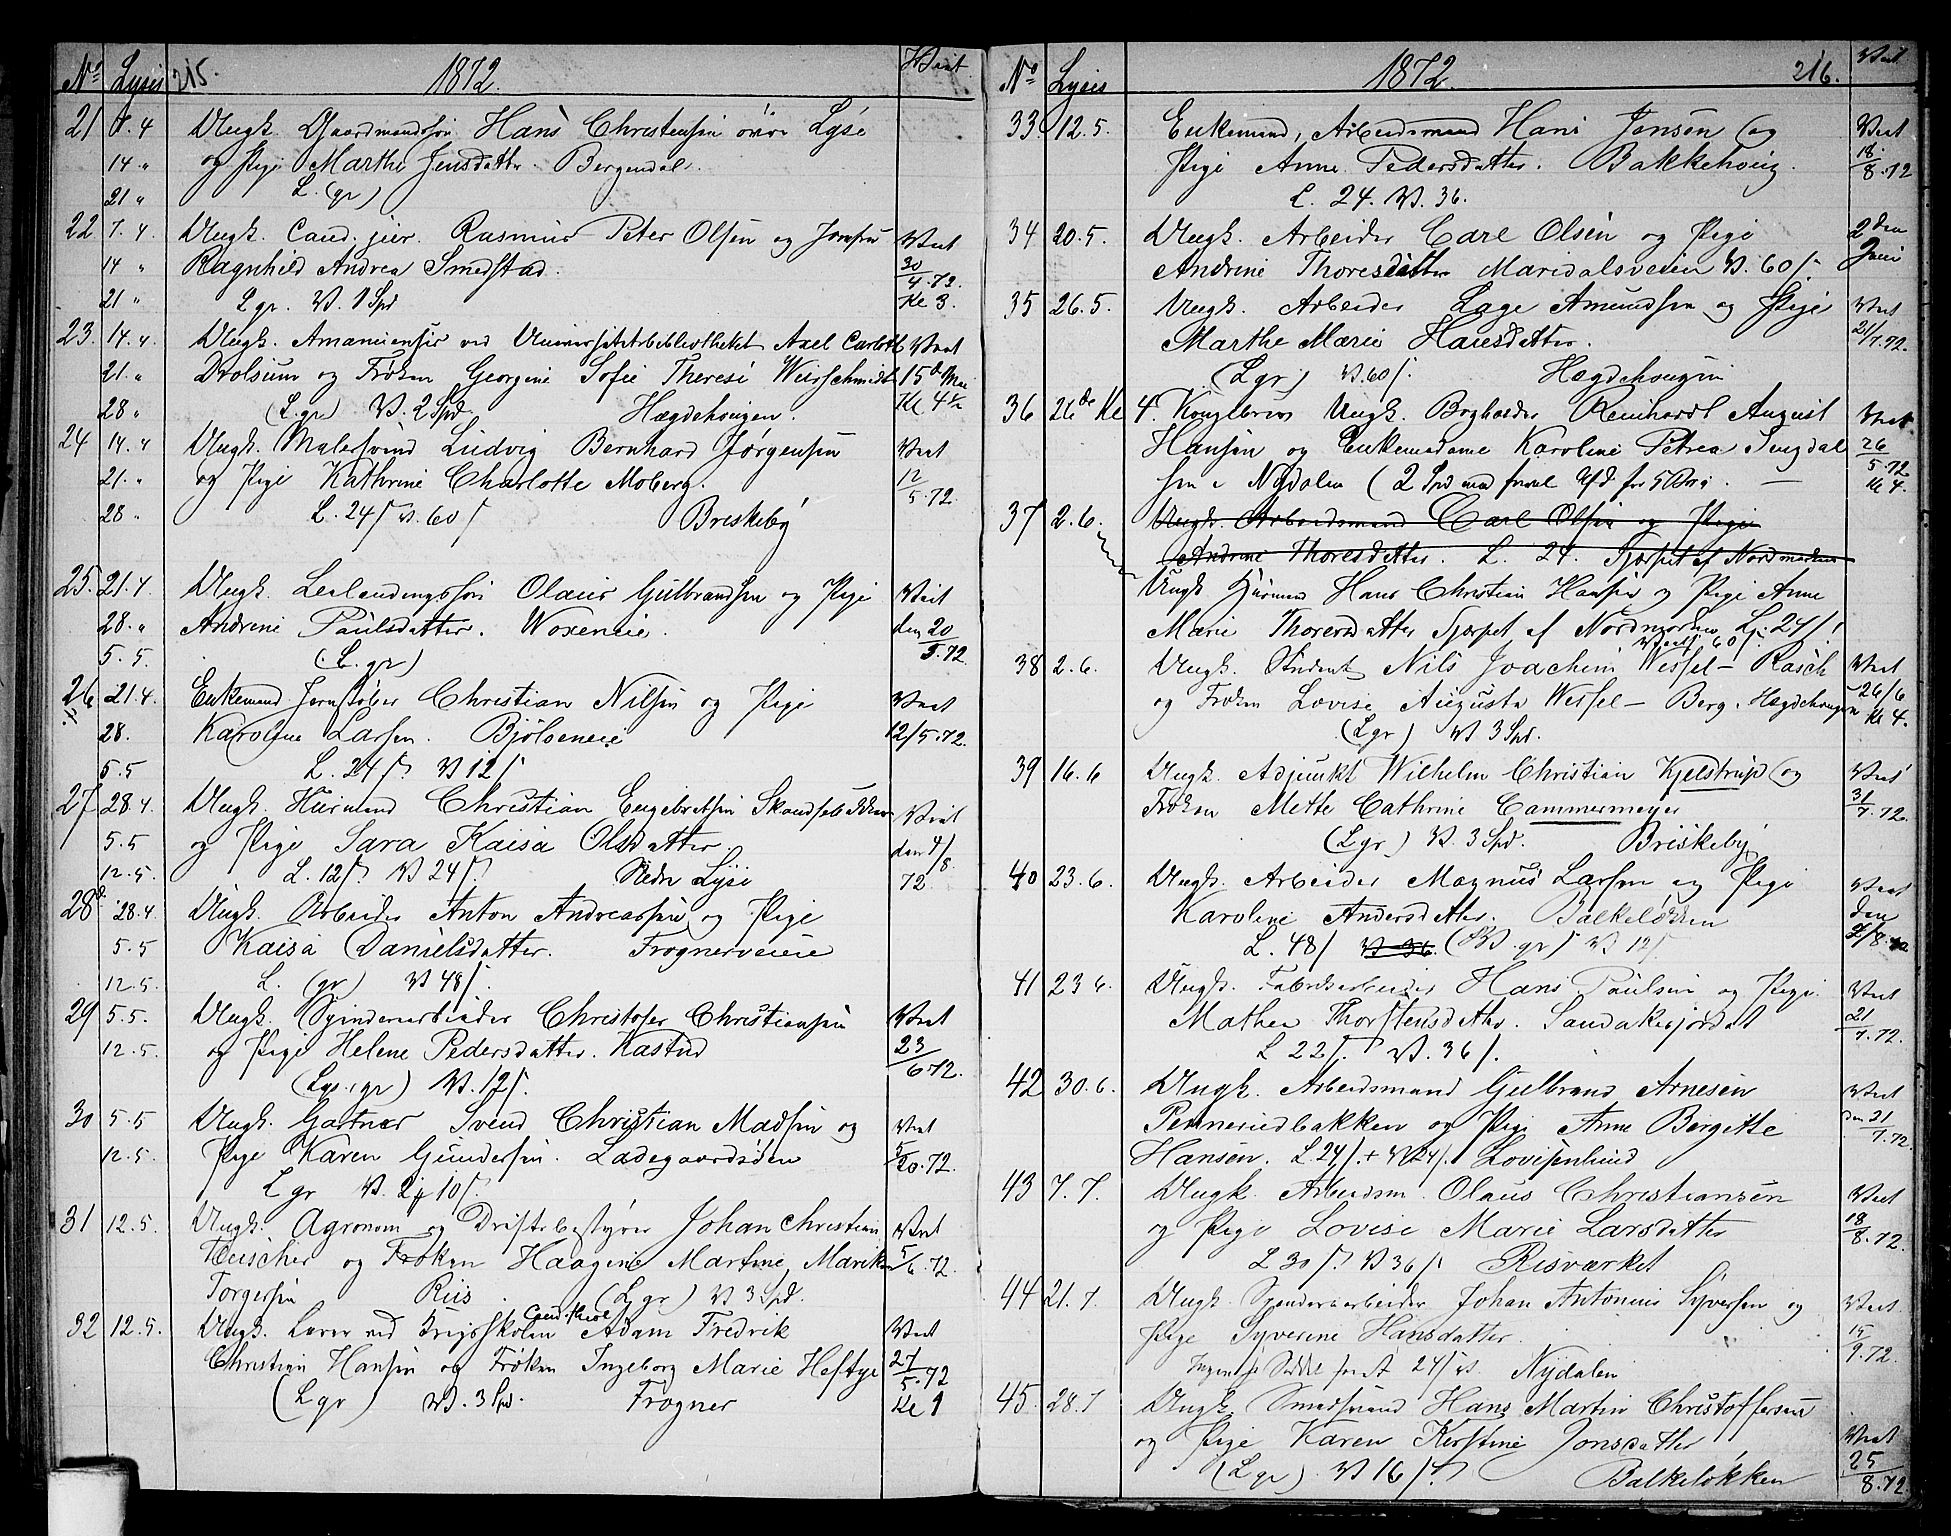 No Lysis 215. 1872. Viet
21 7.4 Ungk. Gaardmandssøn Hans Christensen øvre Lysø
14 " og Pige Marthe Jensdatter. Bergendal.
21 " L. (gr)
22 7.4. Ungk. Cand. jur. Rasmus Peter Olsen og Jomfru Viet
14 " Ragnhild Andrea Smedstad. 30/4.72.
21 " L gr. V. 1 Spd Kl 3.
23. 14.4. Ungk. Amanuensis ved Universitetsbibliotheket Axel Carlott Viet
21. " Drolsum og Frøken Georgine Sofie Therese 15de Mai
28 " (L.gr) V. 2 Spd. Hægdehougen. Kl 4½
24 14.4 Ungk. Malersvend Ludvig Bernhard Jørgensen Viet
21. " og Pige Kathrine Charlotte Moberg. 12/5.72.
28 " L. 24 / V. 60 / Briskeby
25. 21.4. Ungk. Leilendingssøn Olaus Gulbrandsen og Pige Viet
28. " Andrine Paulsdatter. Voxeneie. den 20/5.72
5.5. (L. gr)
26 21.4. Enkemand Jernstøber Christian Nilsen og Pige Viet
28. Karoline Larsen. Bjølseneie 12/5.72.
5.5 L. 24 / V 12 /
27 28.4. Ungk. Huusmand Christian Engebretsen Viet
5.5 og Pige Sara Kaisa Olsdatter den 4/8.
12.5. L. 12 / V 24 / Nedre Lysø 72
28 28.4. Ungk. Arbeider Anton Andreassen og Pige
5.5 Kaisa Danielsdatter. Frognerveien
12.5. L. (gr) V 48 /
29 5.5. Ungk. Spinderiarbeider Christofer Christiansen Viet
12.5. og Pige Helene Pedersdatter. Kastud 23/6.72.
(Lys. gr) V. 12 /
30 5.5 Ungk. Gartner Svend Christian Madsen og Viet
12.5. Pige Karen Gundersen. Ladegaardsøen 5/10.72.
L gr V. 2 10 /
31 12.5. Ungk. Agronom og Driftsbestyrer Johan Christian Viet
Teischer og Frøken Haagine Martine 5/6.72.
Torgersen Riis. (L gr) V 3 Spd.
32 12.5. Ungk. Lærer ved Krigsskolen Cand. theol Adam Fredrik Viet
Christian Hansen og Frøken Ingeborg Marie Heftye 27/5.72
(L gr) V. 3 Spd. Frogner Kl 1
No Lysis 1872. 216. Viet
33. 12.5. Enkemand, Arbeidsmand Hans Jensen og Viet
Pige Anne Pedersdatter. Bakkehoug. 18/8.72
L. 24. V. 36.
34 20.5. Ungk. Arbeider Carl Olsen og Pige 2den
Andrine Thoresdatter Maridalsveien V. 60 /. Juni
35 26.5. Ungk. Arbeider Lage Amundsen og Pige Viet
Marthe Marie Hansdatter. 21/7.72.
(L gr) V. 60 /. Hægdehougen
36 26de Kl 4. Kongebrev Ungk. Bogbinder Reinhardt August Viet
Hansen og Enkemadame Karoline Petrea 26/5.72
sen Nydalen (2 Spd Kl 4.
37 2.6. Ungk. Arbeidsmand Carl Olsen og Pige
Andrine Thoresdatter. L. 24. af Nordmarken
Ungk. Huusmand Hans Christian Hansen og Pige Anne
Marie Thoresdatter af Nordmarken L. 24 /
38 2.6. Ungk. Student Nils Joachim Wessel-Rasch Viet
og Frøken Lovise Augusta Wessel-Berg. Hægdehougen 26/6
(L gr) V 3 Spd. Kl 4.
39 16.6 Ungk. Adjunkt Wilhelm Christian Kjelstrup og Viet
Frøken Mette Cathrine Cammermeyer 31/7.72.
(L gr) V. 3 Spd. Briskeby
40 23.6. Ungk. Arbeider Magnus Larsen og Pige Viet
Karoline Andersdatter. Balkeløkken den
L. 48 / V 36. gr) V 12 / 2/8.72
41 23.6. Ungk. Fabrikarbeider Hans Paulsen og Pige Viet
Mathea Thorstensdatter. Sandakerjordet 21/7.72.
L 22 /. V. 36 /.
42 30.6. Ungk. Arbeidsmand Gulbrand Arnesen Viet
og Pige Anne Bergitte den 21/7.72.
Hansen. L. 24 /. + V 24 /. Lovisenlund
43 7.7. Ungk. Arbeidsm. Olaus Christiansen Viet
og Pige Lovise Marie Larsdatter 18/8.72.
L 30 / V 36 / Risværket
44 21.7. Ungk. Spinderiarbeider Johan Antonius Syversen og Viet
Pige Syverine Hansdatter. 15/9.72.
24 / Nydalen
45. 28.7 Ungk. Smedsvend Hans Martin Christoffersen
og Pige Karen Kirstine Jonsdatter Viet
(L gr). V 16 / Balkeløkken 25/8.72.